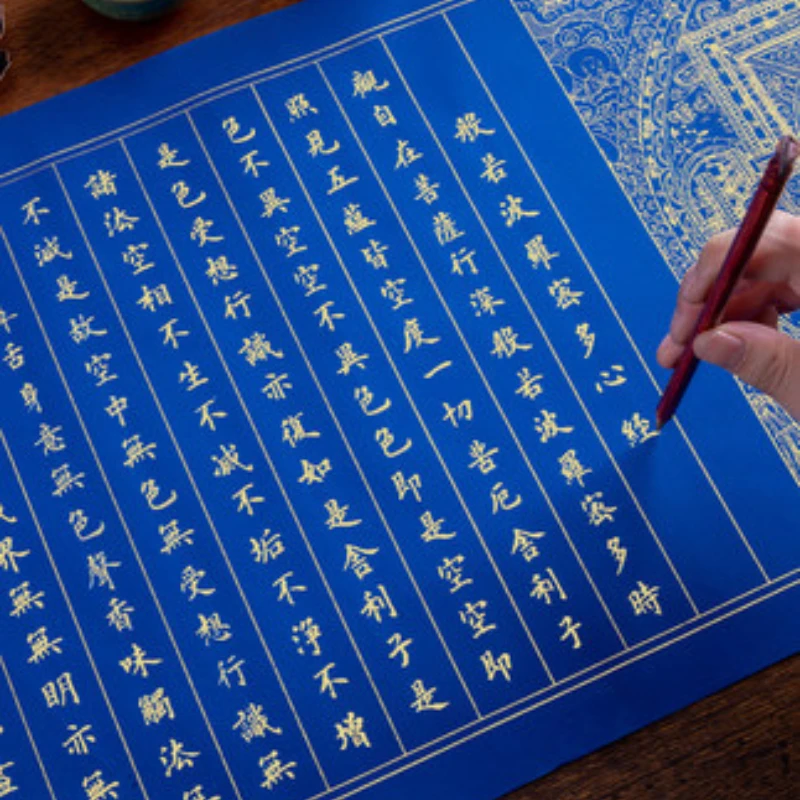 般若波羅密多心經
觀自在菩薩行深般若波羅密多時
照見五蘊皆空度一切苦厄舍利子
色不異空空不異色色即是空空即
是色受想行識亦復如是舍利子是
諸法空相不生不滅不垢不淨不增
不減是故空中無色無受想行識無
舌身意無色聲香味觸法無
界無無明亦無